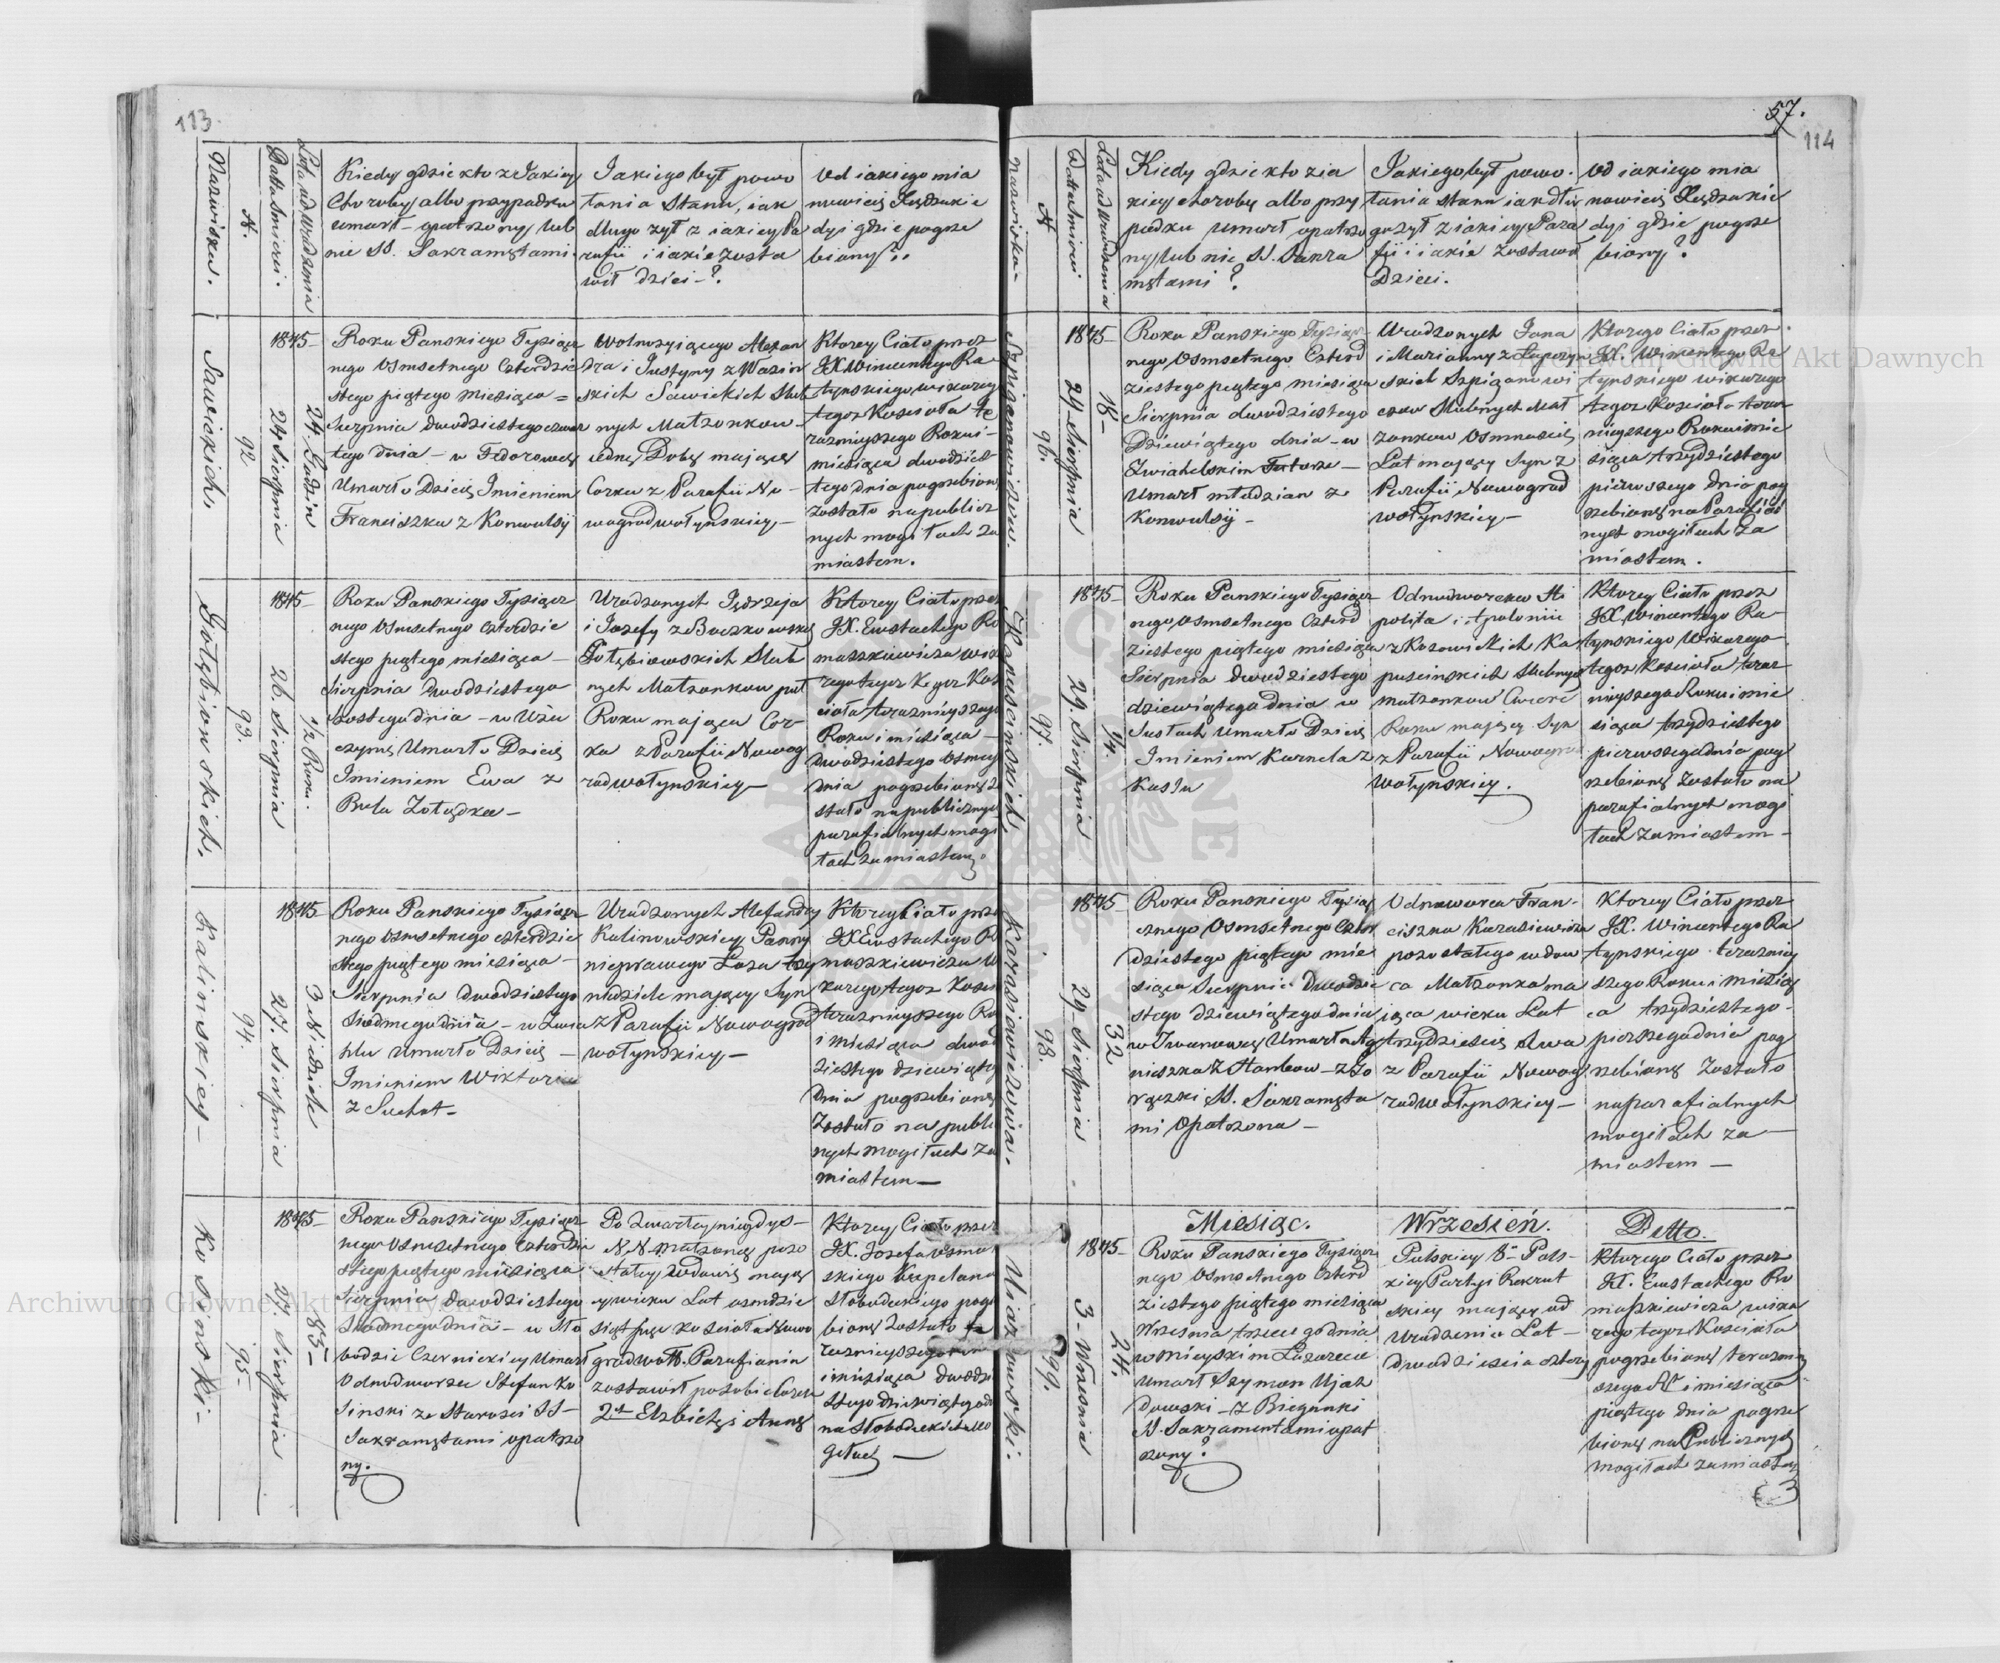 113.
Nazwiska.
N.
Datta Smierci.
Lata od Urodzenia
Kiedy gdzie kto z Jakiey
Choroby, albo przypadku
umarł - opatrzony, lub
nie SS. Sakramętami.
Jakiego był powo
łania Stanu, iak
długo żył z iakiey Pa
rafii i iakie zosta
wił dzieci -?
Od iakiego mia
nowicie Xiędza kie
dy i gdzie pogrze
biony?
Sawickich.
92
1845-
24 Sierpnia
24 Godzin
Roku Panskiego Tysiącz
nego Osmsetnego Czterdzie
stego piątego miesiąca =
Sierpnia dwudziestego czwar
tego dnia - w Fedorowcy
Umarło Dziecię Imieniem
Franciszka z Konwulsÿ
Wolnożyiącego Alexan
dra i Justyny z Wazin
skich Sawickich Slub
nych Małżonkow -
iedną Dobę maiącą
Corka z Parafii No -
wogrodwołyńskiey -
Ktorey Ciało przez
JX Wincentego Ra-
tynskiego wikarego
tegoż Kosciola te
razniyszego Roku i -
miesiąca dwudzies-
tego dnia pogrzebione
zostało na publicz
nych mogiłach za
miastem.
Gołębiowskich.
93.
1845-
26. Sierpnia
1/2 Roku.
Roku Panskiego Tysiącz
nego Osmsetnego czterdzie
stego piątego miesiąca -
Sierpnia dwudziestego
szostego dnia - w Użu
czynię Umarło Dziecię
Imieniem Ewa z
Bulu Zołądka -
Urodzonych Jędrzeja
i Jozefy z Buczkowskich
Gołębiowskich Slub
nych Małżonkow puł
Roku maiąca Cor-
ka z Parafii Nowog
rodwołynskiey -
Ktorey Ciało przez
JX. Eustachego Ro
maszkiewicza wika
rego tegoż Kos
cioła terazniyszego
Roku i miesiąca -
dwudziestego osmego
dnia pogrzebione zo
stało na publicznych
parafialnych mogi
łach za miastem.
Kalinskiey -
94.
1845-
27. Sierpnia
3 Niedziele
Roku Panskiego Tysiącz
nego Osmsetnego czterdzie
stego piątego miesiąca -
Sierpnia dwudziestego
siodmego dnia - w Zwia
hlu Umarło Dziecię -
Imieniem Wiktoria
z Suchot -
Urodzonych Alexandry
Kalinowskiey Panny
nieprawego Łoża trzy
niedziele maiący Syn
z Parafii Nowogrod
wołynskiey -
Ktorey Ciało prze
JX Eustachego R
maszkiewicza W
karego tegoż Kosci
terazniyszego Ro
i miesiąca dwud
ziestego dziewiąteg
dnia pogrzebione
Zostało na publi
nych mogiłach za
miastem -
Kosinski.
95.
1845-
27. Sierpnia
85-
Roku Panskiego Tysiącz
nego Osmsetnego czterdzie
stego piątego miesiąca
Sierpnia dwudziestego
Siodmego dnia - w Sło
bodzie Czernickiey Umarł
Odnodworzec Stefan Ko
sinski ze Starosci SS -
Sakramętami opatrzo
ny.
Po Zmarłey niegdys -
N. N. Małżonce pozo
stałey Wdowiec maią
cy wieku Lat osmdzie
siąt pięc Kosciola Nowo
grodwoł. Parafianin
zostawił po sobie Corek
2. Elzbietę i Annę
Ktorey Ciało przez
JX. Jozefa Osmol
skiego Kapelana
Słobodeckiego pogr
bione zostało te
razniyszego Roku
i miesiąca dwudzi
stego dziewiątego d
na Słobodeckich Mo
giłach -
57.
114
Nazwiska -
N
Datta Smierci
Lata od Urodzenia
Kiedy gdzie kto z ia
kiey choroby albo przy
padku umarł opatrzo
ny, lub nie SS. Sakra
mętami?
Jakiego był powo.
łania stanu iak dłu
go żył z iakiey Para
fii i iakie zostawił
Dzieci.
Od iakiego mia
nowicie Xiędza kie
dy i gdzie pogrze
biony?
Szpiganowiczow.
96.
1845-
29 Sierpnia
18-
Roku Panskiego Tysiącz
nego Osmsetnego Czterd
ziestego piątego miesiąca
Sierpnia dwudziestego
Dziewiątego dnia - w
Zwiahelskim Futorze -
Umarł młodzian z
Konwulsÿ -
Urodzonych Jana
i Marianny z Łapczyn
skich Szpiganowi
czow Slubnych Mał
żonkow Osmnascie
Lat maiący Syn z
Parafii Nowogrod
wołynskiey -
Ktorego Ciało przez
JX. Wincentego Ra
tynskiego wikarego
tegoż Kosciola teraz
nieyszego Roku i mie
siąca trzydziestego
pierwszego dnia pog
rzebione na Parafial
nych mogiłach Za
miastem.
Kapuscinskich
97.
1845-
29. Sierpnia
1/4.
Roku Panskiego Tysiącz
nego Osmsetnego Czterd
ziestego piątego miesiąca
Sierpnia dwudziestego
dziewiątego dnia w
Susłach Umarło Dziecię
Imieniem Kornela z
Kaszlu
Odnodworcow Hi
polita i Apolonii
z Kozowickich Ka
puscinskich Slubnych
małżonkow Cwierć
Roku maiący Syn
z Parafii Nowogrod
wołynskiey.
Ktorey Ciało przez
JX. Wincentego Ra-
tynskiego Wikarego
tegoż Kosciola teraz
nieyszego Roku i mie
siąca trzydziestego
pierwszego dnia pog
rzebione Zostało na
parafialnych mogi
łach Za miastem -
Karasiewiczowa.
98.
1845
29. Sierpnia
32
Roku Panskiego Tysiąc
cznego Osmsetnego Czter
dziestego piątego mie
siąca Sierpnia Dwudzie
stego dziewiątego dnia
w Iwanowcy Umarła Ag
nieszka z Hambow - z Go
rączki SS. Sakramęta
mi Opatrzona -
Odnodworca Fran-
ciszka Karasiewicza
pozostałego wdow
ca Małżonka ma
iąca wieku Lat
trzydziesci dwa
z Parafii Nowog
rodwołynskiey -
Ktorey Ciało przez
JX. Wincentego Ra
tynskiego terazniey
szego Roku i miesią
ca trzydziestego -
pierszego dnia pog
rzebione Zostało
na parafialnych
mogiłach za -
miastem -
Uiazdowski.
99.
1845-
3 - Wrzesnia
24.
Miesiąc.
Wrzesień.
Detto.
Roku Panskiego Tysiącz
nego Osmsetnego Czterd
ziestego piątego miesiąca
Wrzesnia trzeciego dnia
w Mieyskim Lazarecie
Umarł Szymon Ujaz
dowski - z Biegunki
SS. Sakramentami opat
rzony?
Pułskiey 8. Pols-
kiey Partyi Rekrut
skiey maiący od
Urodzenia Lat -
dwadziescia cztery
Ktorego Ciało przez
JX. Eustachego Ro
maszkiewicza wika
rego tegoż Kosciola
pogrzebione terazniey
szego R. i miesiąca
piątego dnia pogrze
bione na Publicznych
mogiłach za miastem
Archiwum Główne Akt Dawnych
Archiwum Główne Akt Dawnych